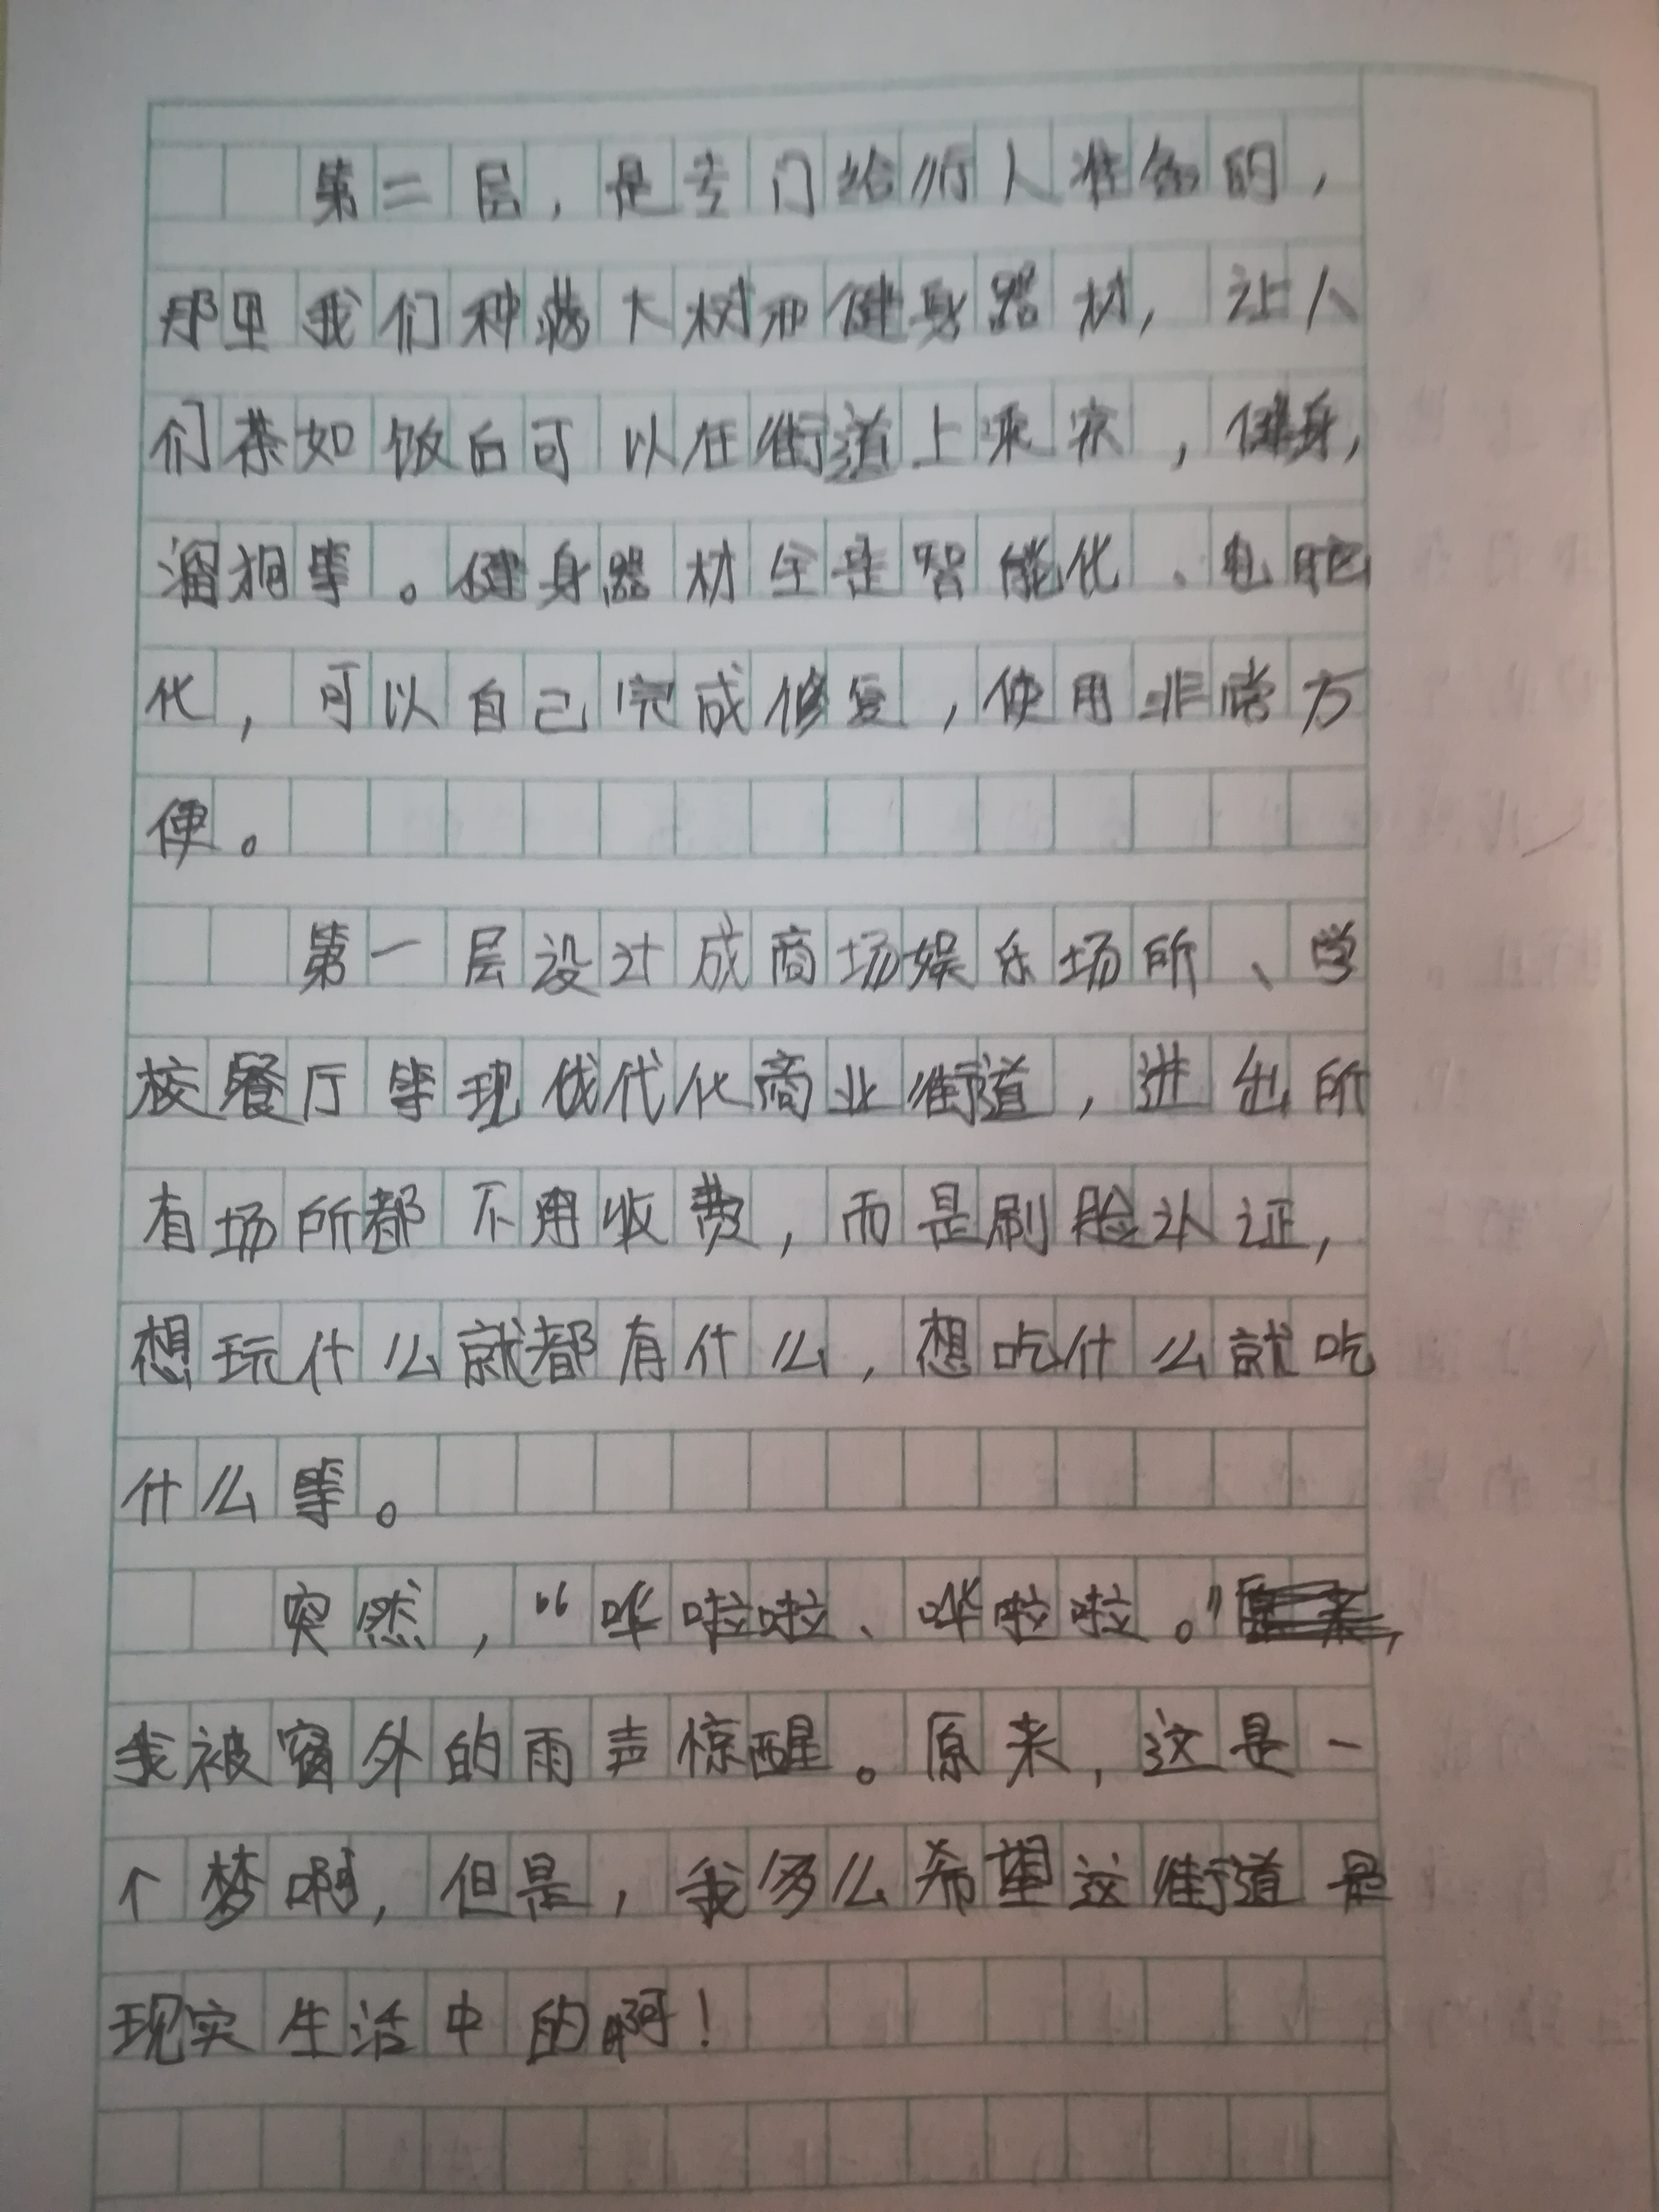 第二层，是专门给行人准备的，
那里我们种满大树和健身器材，让人
们茶如饭后可以在街道上乘凉，健身，
溜狗等。健身器材全是智能化、电脑
化，可以自己完成修复，使用非常方
便。
第一层设计成商场娱乐场所、学
校餐厅等现代化商业街道，进出所
有场所都不用收费，而是刷脸认证，
想玩什么就都有什么，想吃什么就吃
什么等。
突然，“哗啦啦、哗啦啦。”
我被窗外的雨声惊醒。原来，这是一
个梦啊，但是，我多么希望这街道是
现实生活中的啊！